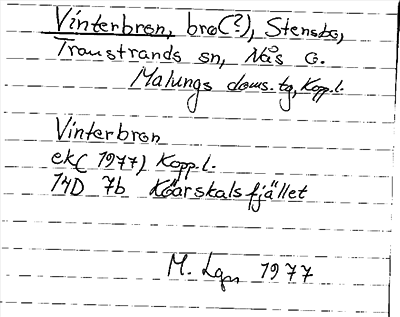 Vinterbron, bro(?), Stensbo,
Transtrands sn, Nås G.
Malungs doms. tg, Kopp.l.
Vinterbron
ek( 1977) Kopp.l.
14D 7b Köarskalsfjället
M. Lgn 1977